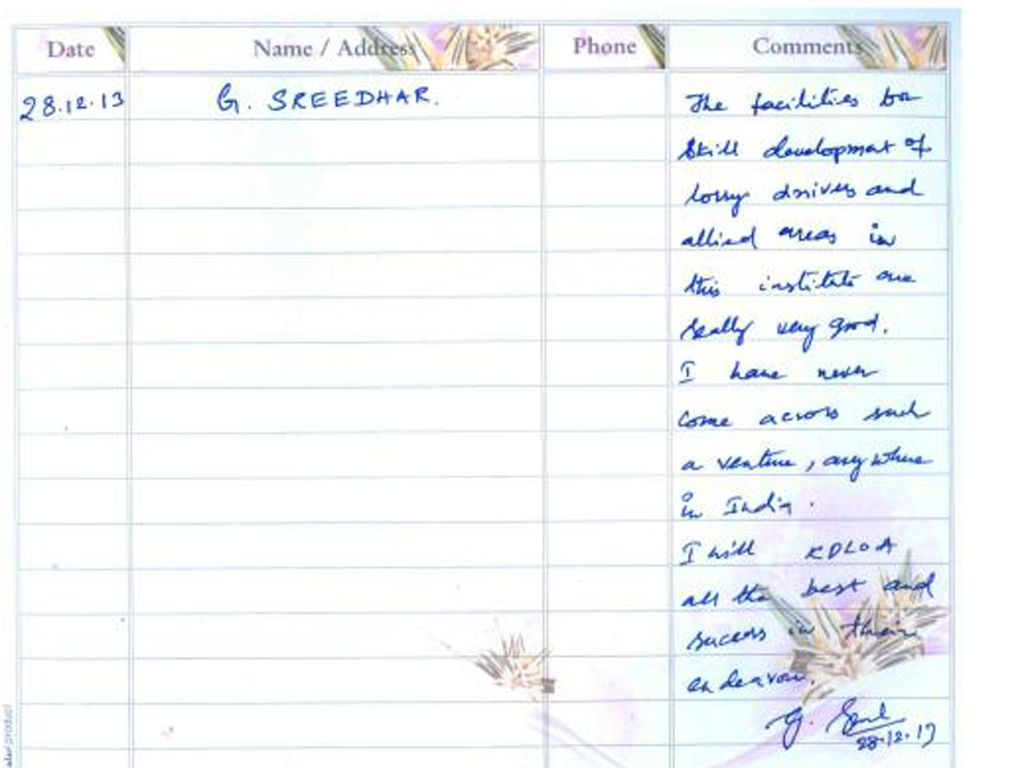 Date Name / Address Phone Comments
28.12.13 G. SREEDHAR. The facilities for
skill development of
lorry drivers and
allied areas in
this institute are
really very good.
I have never
come across such
a venture, anywhere
in India.
I will KDLOA
all the best and
success in their
endeavour.
G.
28.12.13